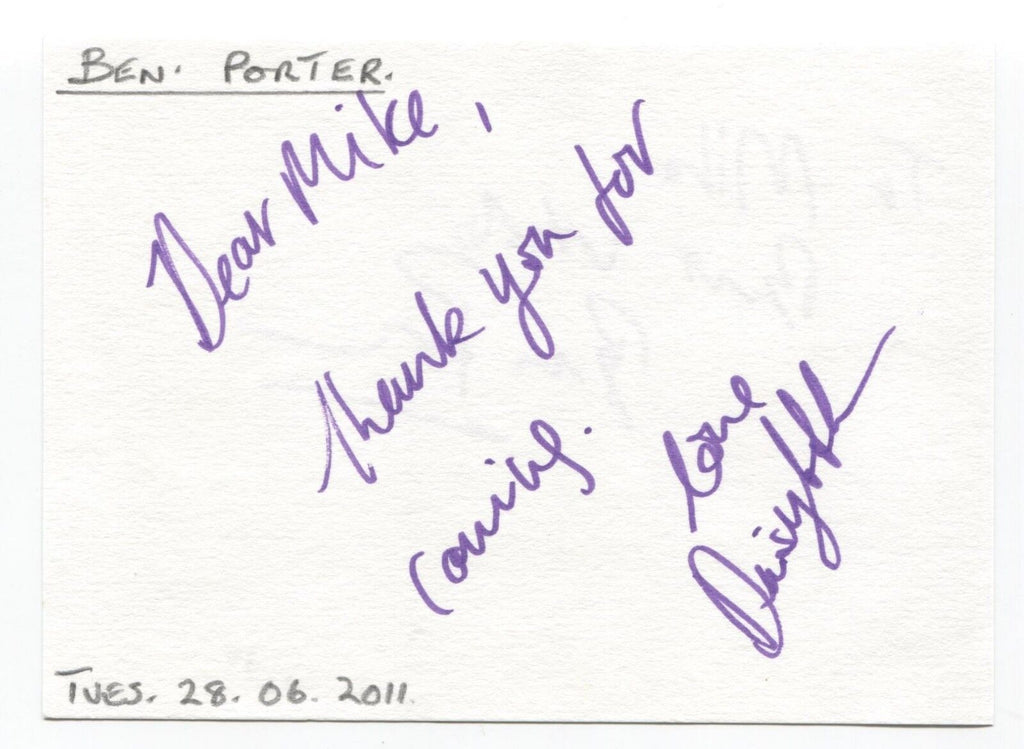 BEN. PORTER.
Dear Mike,
thank you for
coming.
love
TUES. 28. 06. 2011.